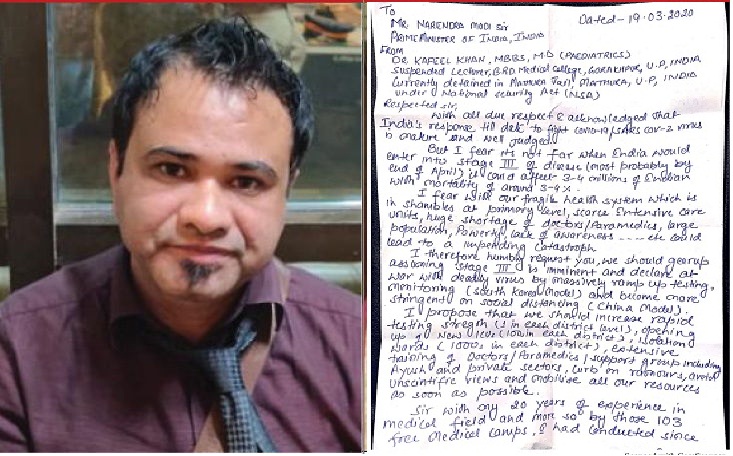 To
Dated- 19.03.2020
Mr. NARENDRA MODI Sir
PRIMEMINISTER OF INDIA, INDIA
From
Dr KAFEEL KHAN, MBBS, MD (PAEDIATRICS)
Suspended Lecturer, BRD Medical College, GORAKHPUR, U.P, INDIA
Currently detained in Mathura Jail, MATHURA, U.P, INDIA
under National security Act (NSA)
Respected sir,
With all due respect I acknowledged that
India's response till date to fight covid-19/sars cov-2
is mature and well judged.
But I fear its not far when India would
enter into stage III of disease (most probably by
end of April) is could affect 3-4 millions of Indian
with mortality of around 3-4%.
I fear with our fragile health system which is
in shambles at primary level, scarce Intensive care
units, huge shortage of doctors/Paramedics, large
population, Poverty, lack of awareness .... etc could
lead to a impending catastroph
I therefore humbly request you, we should gearup
assuming stage III is imminent and declare at
war with deadly virus by massively ramp up testing,
monitoring (South Korea Model) and become more
stringent on social distancing (China Model).
I propose that we should increase rapid
testing strength (1 in each district level), opening
up of New ICU (100 in each district), Isolation
wards (1000s in each district), extensive
training of Doctors/Paramedics/support group including
Ayush and private sectors, curb on rumours, avoid
unscientific views and mobilise all our resources
as soon as possible.
Sir with my 20 years of experience in
medical field and more so by those 103
free Medical camps, I had conducted since